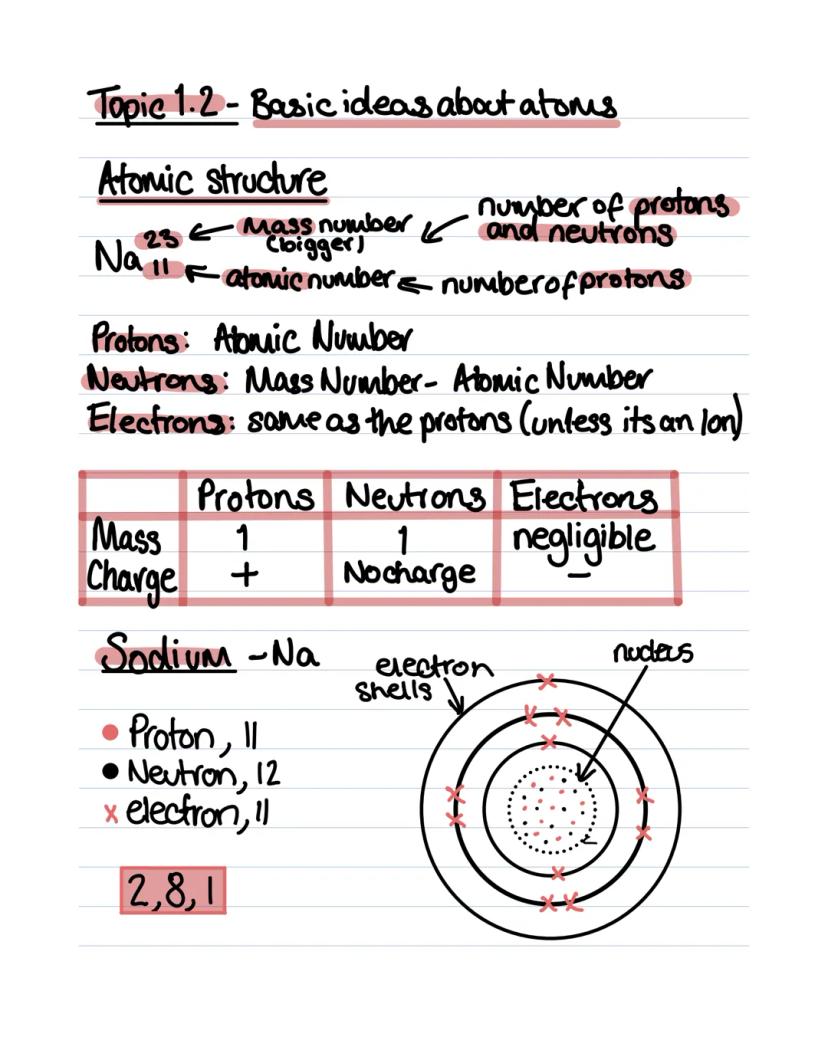 Topic 1.2 - Basic ideas about atoms
Atomic structure
Na 23 11
Mass number
(bigger)
number of protons
and neutrons
atomic number
number of protons
Protons: Atomic Number
Neutrons: Mass Number - Atomic Number
Electrons: same as the protons (unless its an Ion)
Protons Neutrons Electrons
Mass 1 1 negligible
Charge + No charge -
Sodium - Na
electron
shells
nucleus
Proton, 11
Neutron, 12
x electron, 11
2,8,1